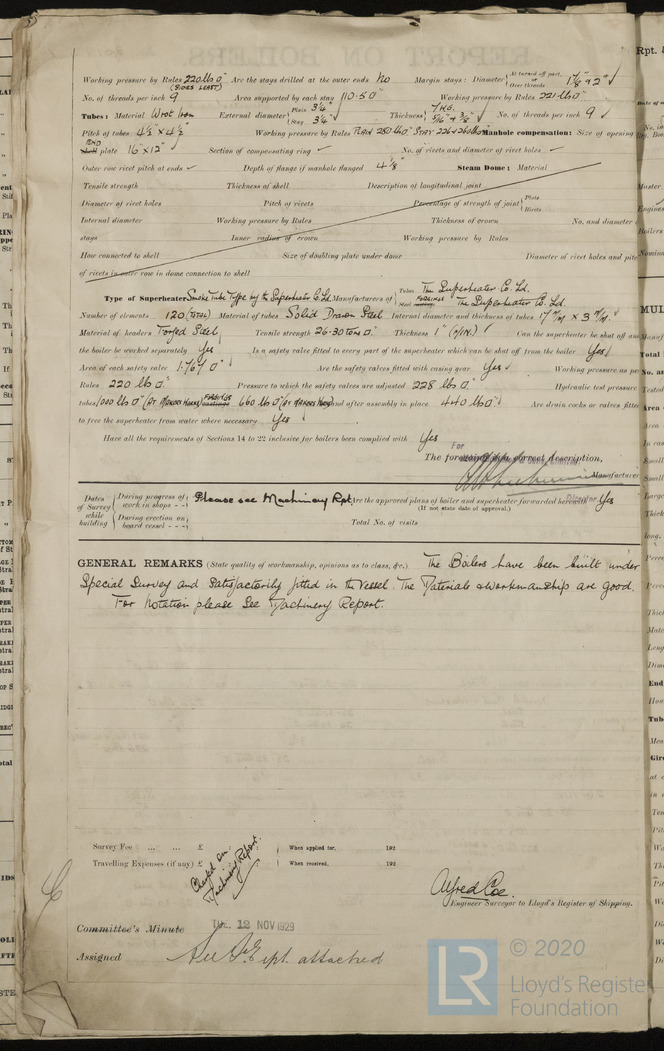 Working pressure by Rules 220 lbs □" (SIDES LEAST) Are the stays drilled at the outer ends No Margin stays: Diameter { At turned off part, or Over threads 1⅞" & 2" ✓
No. of threads per inch 9 Area supported by each stay 110.5 □" Working pressure by Rules 221 lbs □"
Tubes: Material Wrot Iron External diameter { Plain 3¼" Stay 3¼" ✓ Thickness { 7 W.G. 5/16" & 3/8" ✓ No. of threads per inch 9 ✓
Pitch of tubes 4½" × 4½" Working pressure by Rules PLAIN 280 lbs □" STAY 226 & 260 lbs □" Manhole compensation: Size of opening
END plate 16" × 12" ✓ Section of compensating ring ✓ No. of rivets and diameter of rivet holes ✓
Outer row rivet pitch at ends ✓ Depth of flange if manhole flanged 4⅛" Steam Dome: Material
Tensile strength Thickness of shell Description of longitudinal joint
Diameter of rivet holes Pitch of rivets Percentage of strength of joint { Plate Rivets
Internal diameter Working pressure by Rules Thickness of crown No. and diameter
stays Inner radius of crown Working pressure by Rules
How connected to shell Size of doubling plate under dome Diameter of rivet holes and pitch
of rivets in outer row in dome connection to shell
Type of Superheater Smoke Tube Type by the Superheater Co. Ld. Manufacturers of { Tubes The Superheater Co. Ld. Steel FORGINGS The Superheater Co. Ld.
Number of elements 120 (TOTAL) Material of tubes Solid Drawn Steel Internal diameter and thickness of tubes 17 m/m × 3 m/m ✓
Material of headers Forged Steel Tensile strength 26-30 tons □" Thickness 1" (MIN.) ✓ Can the superheater be shut off and
the boiler be worked separately Yes Is a safety valve fitted to every part of the superheater which can be shut off from the boiler Yes ✓
Area of each safety valve 1.767 □" Are the safety valves fitted with easing gear Yes ✓ Working pressure as per
Rules 220 lbs □" Pressure to which the safety valves are adjusted 228 lbs □" Hydraulic test pressure
tubes 1000 lbs □" (AT MAKERS WORKS) FORGINGS castings 660 lbs □" (AT MAKERS WORKS) and after assembly in place 440 lbs □" ✓ Are drain cocks or valves fitted
to free the superheater from water where necessary Yes ✓
Have all the requirements of Sections 14 to 22 inclusive for boilers been complied with Yes
For
The foregoing is a correct description,
Manufacturer
Director
Dates of Survey while building { During progress of work in shops - - { During erection on board vessel - - - Please see Machinery Rpt. Are the approved plans of boiler and superheater forwarded herewith Yes
(If not state date of approval.)
Total No. of visits
GENERAL REMARKS (State quality of workmanship, opinions as to class, &c.) The Boilers have been built under
Special Survey and Satisfactorily fitted in the Vessel. The Materials & workmanship are good.
For Notation please See Machinery Report.
Survey Fee ... ... £ : : When applied for, 192
Travelling Expenses (if any) £ : : When received, 192
Charged on
Machinery Report.
Alfred Coe.
Engineer Surveyor to Lloyd's Register of Shipping.
Committee's Minute TUE. 12 NOV 1929
Assigned See F.E. rpt. attached
© 2020
LR Lloyd's Register
Foundation